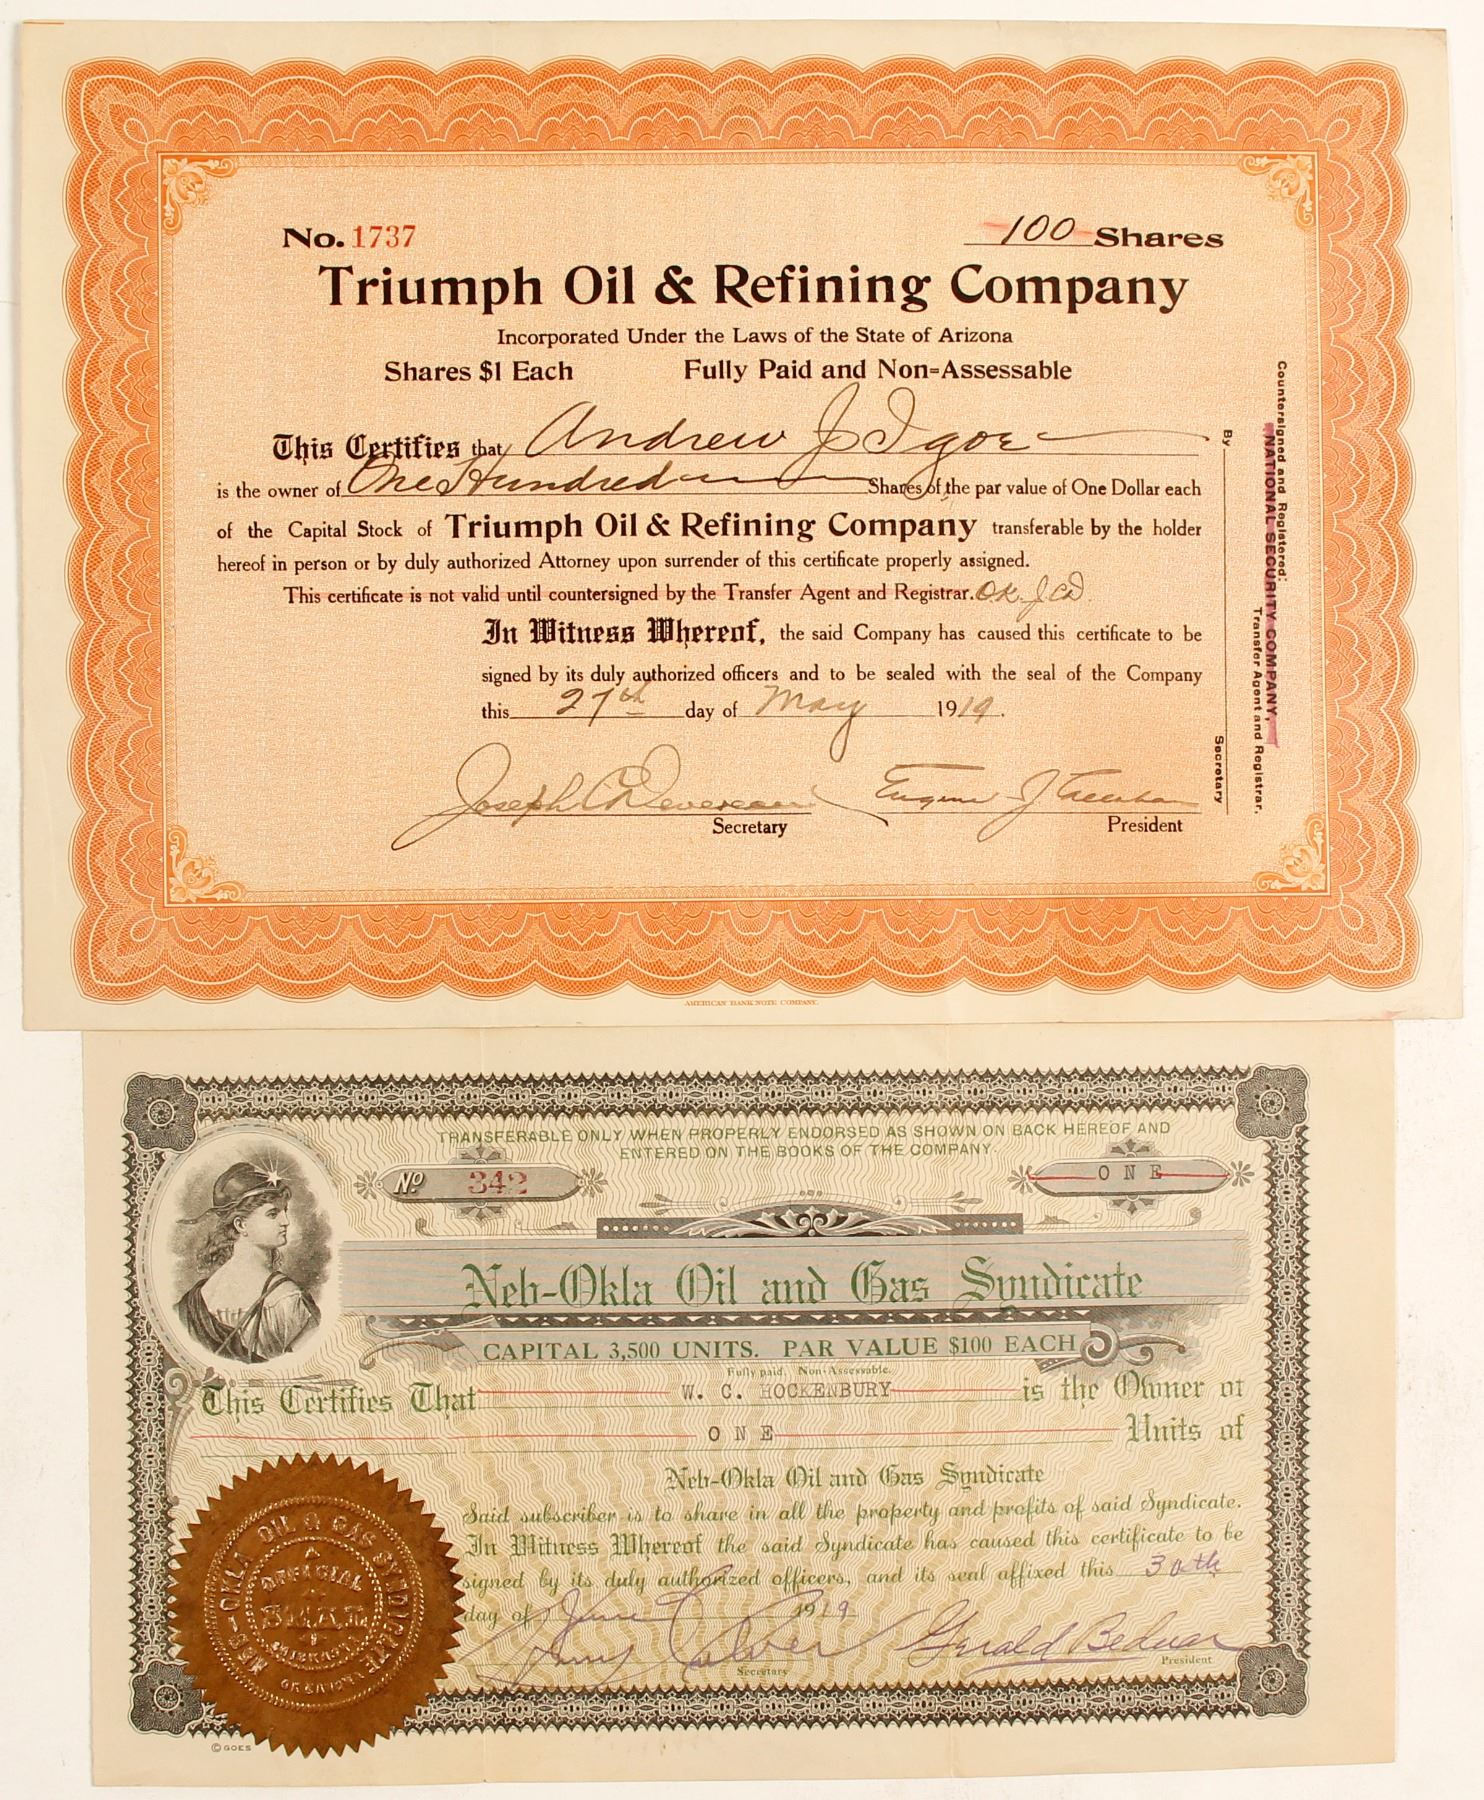 No. 1737
100 Shares
Triumph Oil & Refining Company
Incorporated Under the Laws of the State of Arizona
Shares $1 Each Fully Paid and Non=Assessable
This Certifies that Andrew J Igoe
is the owner of One Hundred Shares of the par value of One Dollar each
of the Capital Stock of Triumph Oil & Refining Company transferable by the holder
hereof in person or by duly authorized Attorney upon surrender of this certificate properly assigned.
This certificate is not valid until countersigned by the Transfer Agent and Registrar. O.K. J.C.D.
In Witness Whereof, the said Company has caused this certificate to be
signed by its duly authorized officers and to be sealed with the seal of the Company
this 27th day of May 1919.
Joseph C Devereau Eugene J
Secretary President
Countersigned and Registered:
NATIONAL SECURITY COMPANY,
Transfer Agent and Registrar.
By
Secretary
AMERICAN BANK NOTE COMPANY.
TRANSFERABLE ONLY WHEN PROPERLY ENDORSED AS SHOWN ON BACK HEREOF AND
ENTERED ON THE BOOKS OF THE COMPANY.
No 342
ONE
Neb-Okla Oil and Gas Syndicate
CAPITAL 3,500 UNITS. PAR VALUE $100 EACH
Fully paid. Non-Assessable.
This Certifies That W. C. HOCKENBURY is the Owner of
ONE Units of
Neb-Okla Oil and Gas Syndicate
Said subscriber is to share in all the property and profits of said Syndicate.
In Witness Whereof the said Syndicate has caused this certificate to be
signed by its duly authorized officers, and its seal affixed this 30th
day of June 1919
Gerald Bednar
Secretary President
NEB-OKLA OIL & GAS SYNDICATE
OFFICIAL
SEAL
© GOES